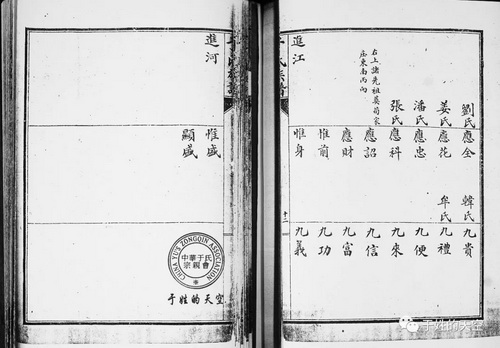 劉氏
姜氏
潘氏
張氏
右上諸先祖葬荀家
東南丙向
進江
應全
應花
應忠
應科
應詔
應財
惟前
惟身
韓氏
牟氏
九貴
九禮
九便
九來
九信
九富
九功
九義
氏族譜
十二
進河
惟盛
顯盛
CHINA YU'S ZONGQIN ASSOCIATION
中華于氏
宗親會
于姓的天空
于姓的天空